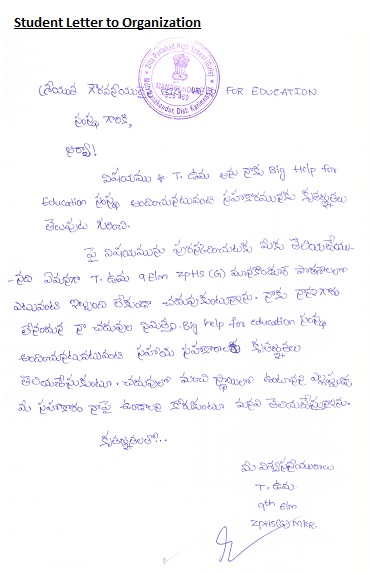 Student Letter to Organization
Zilla Parishad High School (Girls)
MANAKONDUR
505 469
Manakondur, Dist. Karimnagar
శ్రీయుత గౌరవనీయులైన FOR EDUCATION
సంస్థ గారికి,
ఆర్యా!
విషయము :- T. ఉమ అను నాకు Big Help for
Education సంస్థ అందించునటువంటి సహకారమునకు కృతజ్ఞతలు
తెలుపుట గురించి.
పై విషయమును పురస్కరించుకుని మీకు తెలియజేయు-
-నది ఏమనగా T. ఉమ 9 Elm ZPHS (G) మానకొండూర్ పాఠశాలలో
ఎటువంటి ఇబ్బంది లేకుండా చదువుకుంటున్నాను. నాకు నాన్నగారు
లేనందున నా చదువుల నిమిత్తం Big help for education సంస్థ
అందించునటువంటి సహాయ సహకారాలకు కృతజ్ఞతలు
తెలియజేసుకుంటూ, చదువులో మంచి స్థాయిలో ఉంటానని
మీ సహకారం నాపై ఉండాలని కోరుకుంటూ మనవి తెలియజేస్తున్నాను.
కృతజ్ఞతలతో...
మీ విశ్వసనీయురాలు
T. ఉమ
9th Elm
ZPHS(G) MKR.